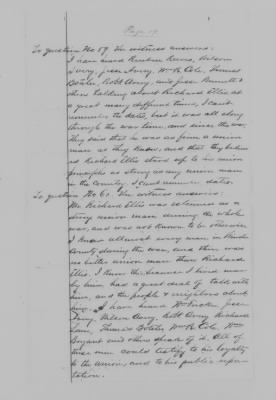 Page 19.
To question No 59 the witness answers:
I have heard Reuben Reeves, Wilson
Avery, Jesse Avery, Wm R. Cole, James
Bolin, Robt Avery, and Jesse Burnett &
others talking about Richard Ellis at
a great many different times, I can't
remember the dates, but it was all along
through the war time, and since the war,
they said that he was as firm a union
man as they knew, and that they believed
as Richard Ellis stood up to his union
principles as strong as any union man
in the country. I can't remember dates.
To question No 60. the witness answers
Mr Richard Ellis was esteemed as a
strong union man during the whole
war, and was not known to be otherwise
I knew almost every man in
County during the war, and there was
no better union man than Richard
Ellis. I know this because I lived near
by him, had a great deal of talk with
him, and the people & neighbors about
him. I have heard Wm Jesse
Avery, Wilson Avery, Robt Avery Richard
James Bolin Wm R. Cole, Wm
Bryant and others speak of it. All of
these men could testify to his loyalty
to the union, and to his public repu-
tation.